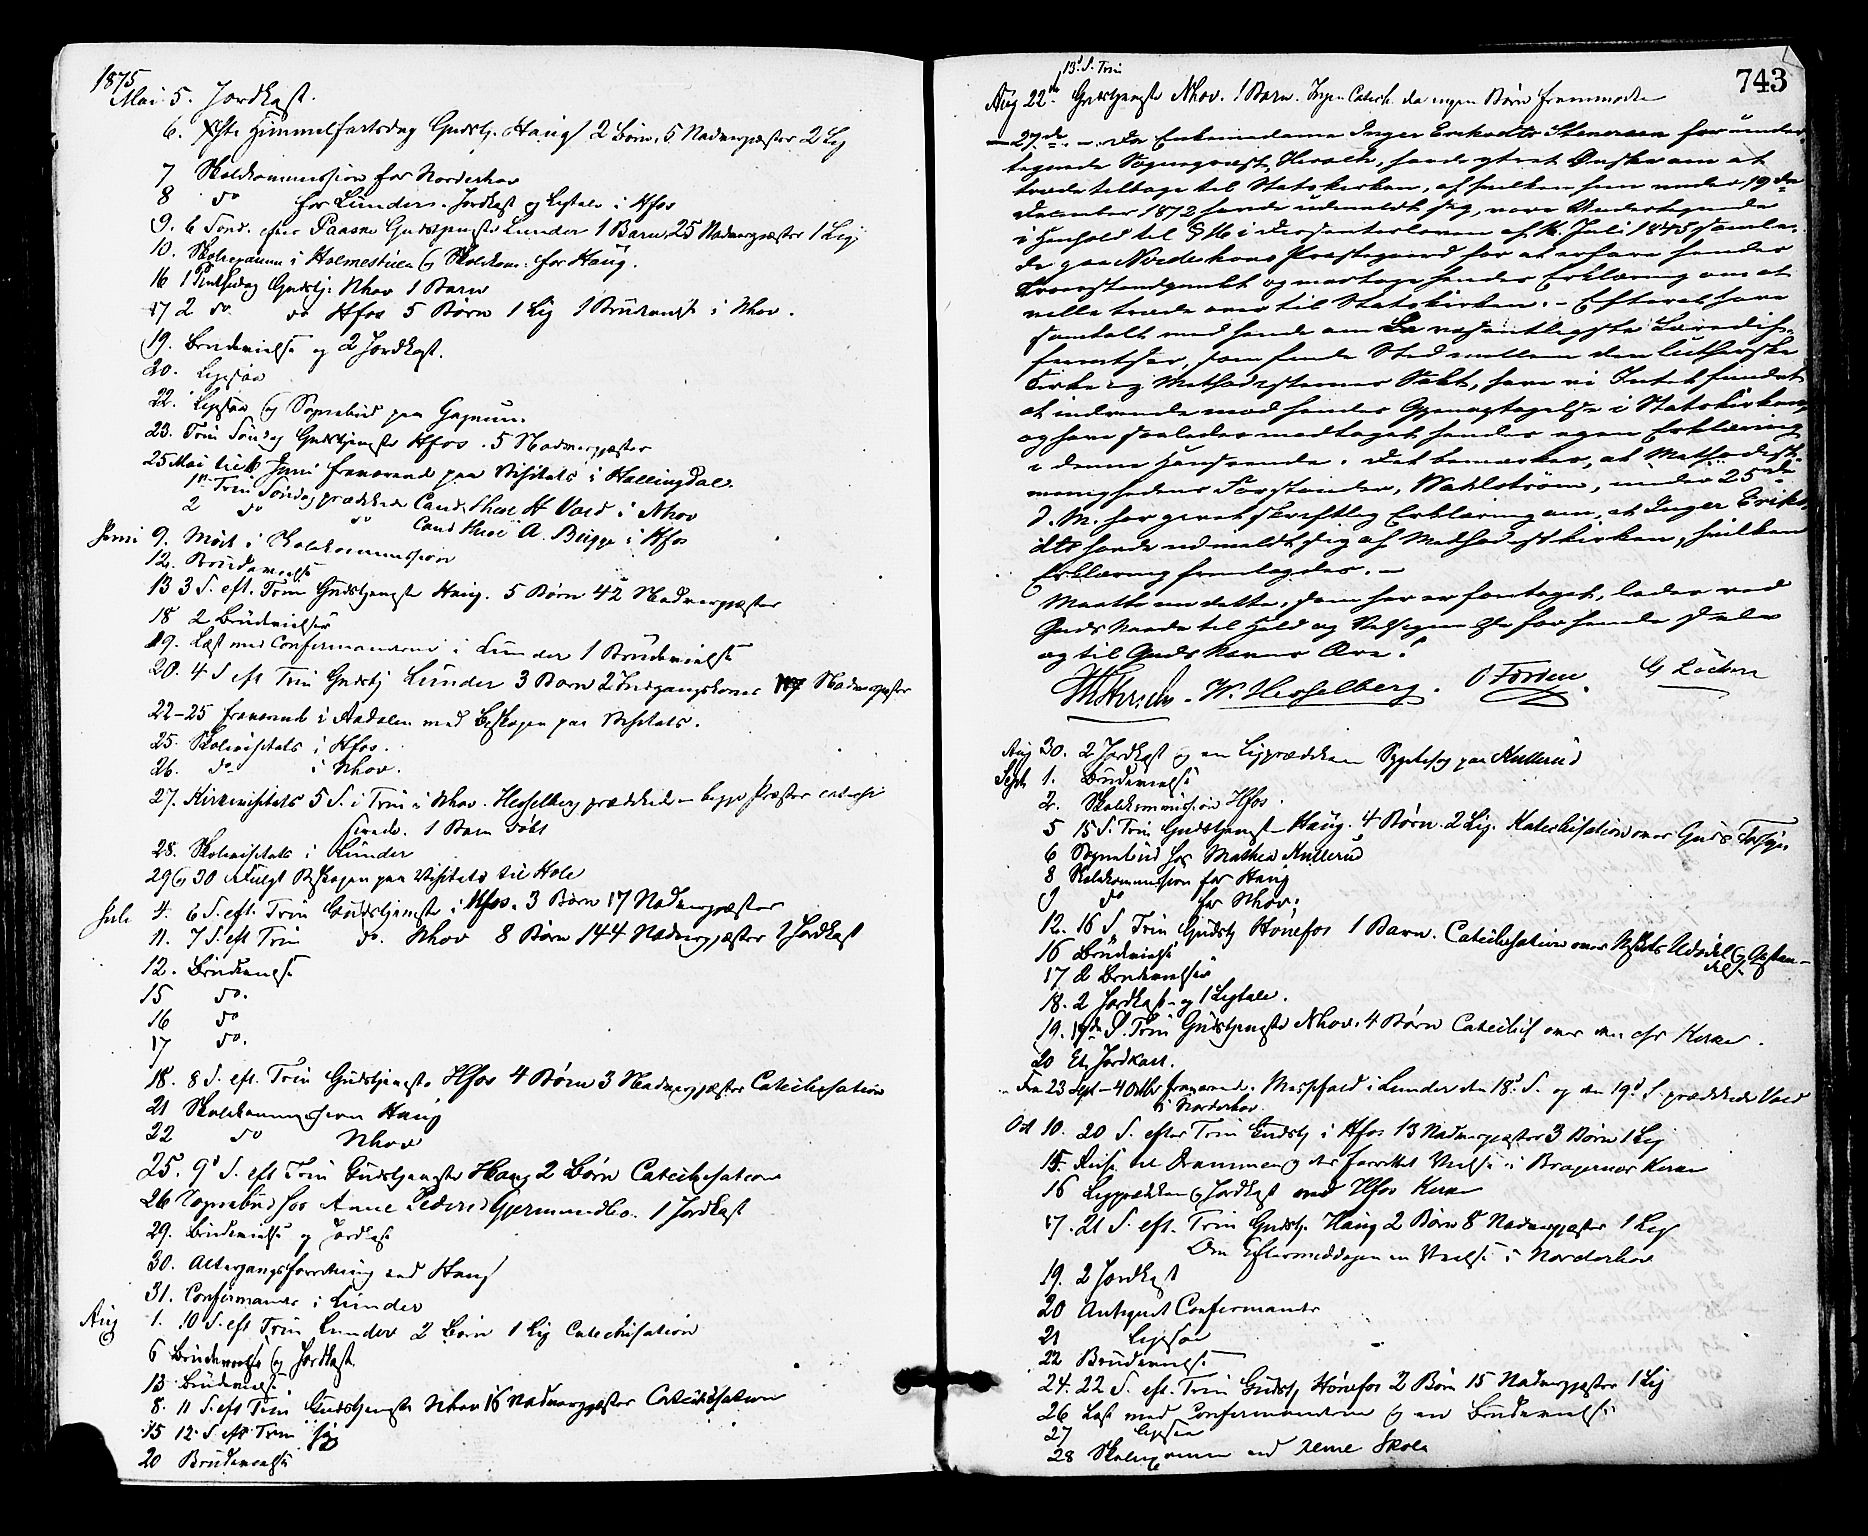 1875
Mai 5. Jordkast.
6. Christi Himmelfartsdag Gudstj. Haug 2 Børn, 5 Nadvergjæster 2 Lig
7 Skolekommission for Norderhov
8 do for Lunder. Jordkast og Ligtale i Hfos
9. 6 Sønd. efter Paaske Gudstjeneste Lunder 1 Barn 25 Nadvergjæster 1 Lig
10. Skoleexamen i Holmestuen og Skolekom. for Haug.
16 1 Pintsedag Gudstj. Nhov 1 Barn
17 2 do do Hfos 5 Børn 1 Lig 1 Brudevielse i Nhov.
19. Brudevielse og 2 Jordkast.
20. Ligtale
22. og Sognebud paa Gagnum.
23. Trin Søndag Gudstjeneste Hfos. 5 Nadvergjæster
25 Mai til Juni fraværende paa Visitats i Hallingdal
1ste Trin Søndag prædikede Cand. Theol H. Vold i Nhov
2 do do Cand Theol A. Bugge i Hfos
Juni 9. Møde i Skolekommission
12. Brudevielse
13 3 S. eft. Trin Gudstjeneste Haug. 5 Børn 42 Nadvergjæster
18 2 Brudevielser
19. Læst med Confirmanderne i Lunder 1 Brudevielse
20. 4 S eft Trin Gudstj Lunder 3 Barn 2 Indgangskoner Nadvergjæster
22-25 fraværende i Aadalen med Biskopen paa Visitats.
25. Skolevisitats i Hfos.
26. do i Nhov.
27. Kirkevisitats 5 S. i Trin i Nhov. Hesselberg prædikede begge Præster catechi-
serede. 1 Barn døbt
28. Skolevisitats i Lunder
29 og 30 fulgt Biskopen paa Visitats til Hole
Juli 4. 6 S. eft. Trin Gudstjeneste i Hfos. 3 Børn 17 Nadvergjæster
11. 7 S. eft Trin do. Nhov 8 Børn 144 Nadvergjæster 2 Jordkast
12. Brudevielse
15 do.
16 do
17 do.
18. 8 S. eft. Trin Gudstjeneste Hfos 4 Børn 3 Nadvergjæster Catechisation
21 Skolekommission Haug
22 do Nhov
25. 9d S. eft Trin Gudstjeneste Haug 2 Børn Catechisation
26 Sognebud hos Anne Pedersd Gjermundbo. 1 Jordkast
29. Brudevielse og Jordkast
30. Altergangsforretning ved Haug
31. Confirmander i Lunder
Aug 1. 10 S. eft Trin Lunder 2 Børn 1 Lig Catechisation
6 Brudevielse og Jordkast
13 Brudevielse
8. 11 S. eft Trin Gudstjeneste Nhov 16 Nadvergjæster Catechisation
15 12 S. eft Trin syg
20 Brudevielse
743
13d S. Trin
Aug 22de. Gudstjeneste Nhov. 1 Barn. Ingen Catech. da ingen Børn fremmødte
— 27de. — Da Enkemadame Inger Eriksdtr Stenersen for under-
tegnede Sognepræst, Hersleb, havde ytret Ønske om at
træde tilbage til Statskirken, af hvilken hun under 19de
December 1872 havde udmeldt sig, vare Undertegnede
i Henhold til § 16 i Dissenterloven af 16 Juli 1845 samle-
de paa Norderhovs Præstegaard for at erfare hendes
Troesstandpunkt og modtage hendes Erklæring om at
ville træde over til Statskirken. – Efterat have
samtalt med hende om de væsentligste Læredif-
ferentser, som finde Sted mellem den lutherske
Kirke og Methodisternes Sekt, have vi Intet fundet
at indvende mod hendes Gjenoptagelse i Statskirken
og have saaledes modtaget hendes egen Erklæring
i denne Henseende. Det bemærkes, at Methodist-
menighedens Forstander, Wahlstrøm, under 25de
d. M. har givet skriftlig Erklæring om, at Inger Eriks-
dtr havde udmeldt sig af Methodistkirken, hvilken
Erklæring fremlagdes. –
Maatte nu dette, som her er foretaget, lades ved
Guds Naade til Held og Velsignelse for hendes Sjæl
og til Guds Navns Ære!
Hersleb. W. Hesselberg. O Forden. G Løchen
Aug 30. 2 Jordkast og en Ligprædiken Sygebesøg paa Hullerud
Sept 1. Brudevielse
2. Skolekommission Hfos.
5 15 S. Trin Gudstjeneste Haug. 4 Børn. 2 Lig. Katechisation over Guds Forsyn
6 Sognebud hos Mathea Hullerud
8 Skolekommission for Haug
9 do for Nhov.
12. 16 S. Trin Gudstj Hønefos 1 Barn. Catechisation over
16 Brudevielse
17 2 Brudevielser
18. 2 Jordkast og 1 Ligtale.
19. 17de S. Trin Gudstjeneste Nhov. 4 Børn Catechis over den chr Kirke.
20 Et Jordkast.
Fra 23 Sept – 4 Octbr fraværende. Messefald i Lunder den 18d S. og den 19d S. prædikede Vold
i Norderhov
Oct 10. 20 S. efter Trin Gudstj i Hfos 13 Nadvergjæster 3 Børn 1 Lig
15. Reise til Drammen og der forrettet Vielse i Bragernes Kirke
16 Ligprædiken og Jordkast ved Hfos Kirke
17. 21 S. eft. Trin Gudstj. Haug 2 Børn 8 Nadvergjæster 1 Lig
Om Eftermiddagen en Vielse i Norderhov
19. 2 Jordkast
20 Antegnet Confirmander
21 Ligtale
22 Brudevielse
24. 22 S. eft. Trin Gudstj Hønefos 2 Børn 15 Nadvergjæster 1 Lig
26 Læst med Confirmanderne og en Brudevielse
27 Ligtale
28 Skoleexamen ved Alme Skole